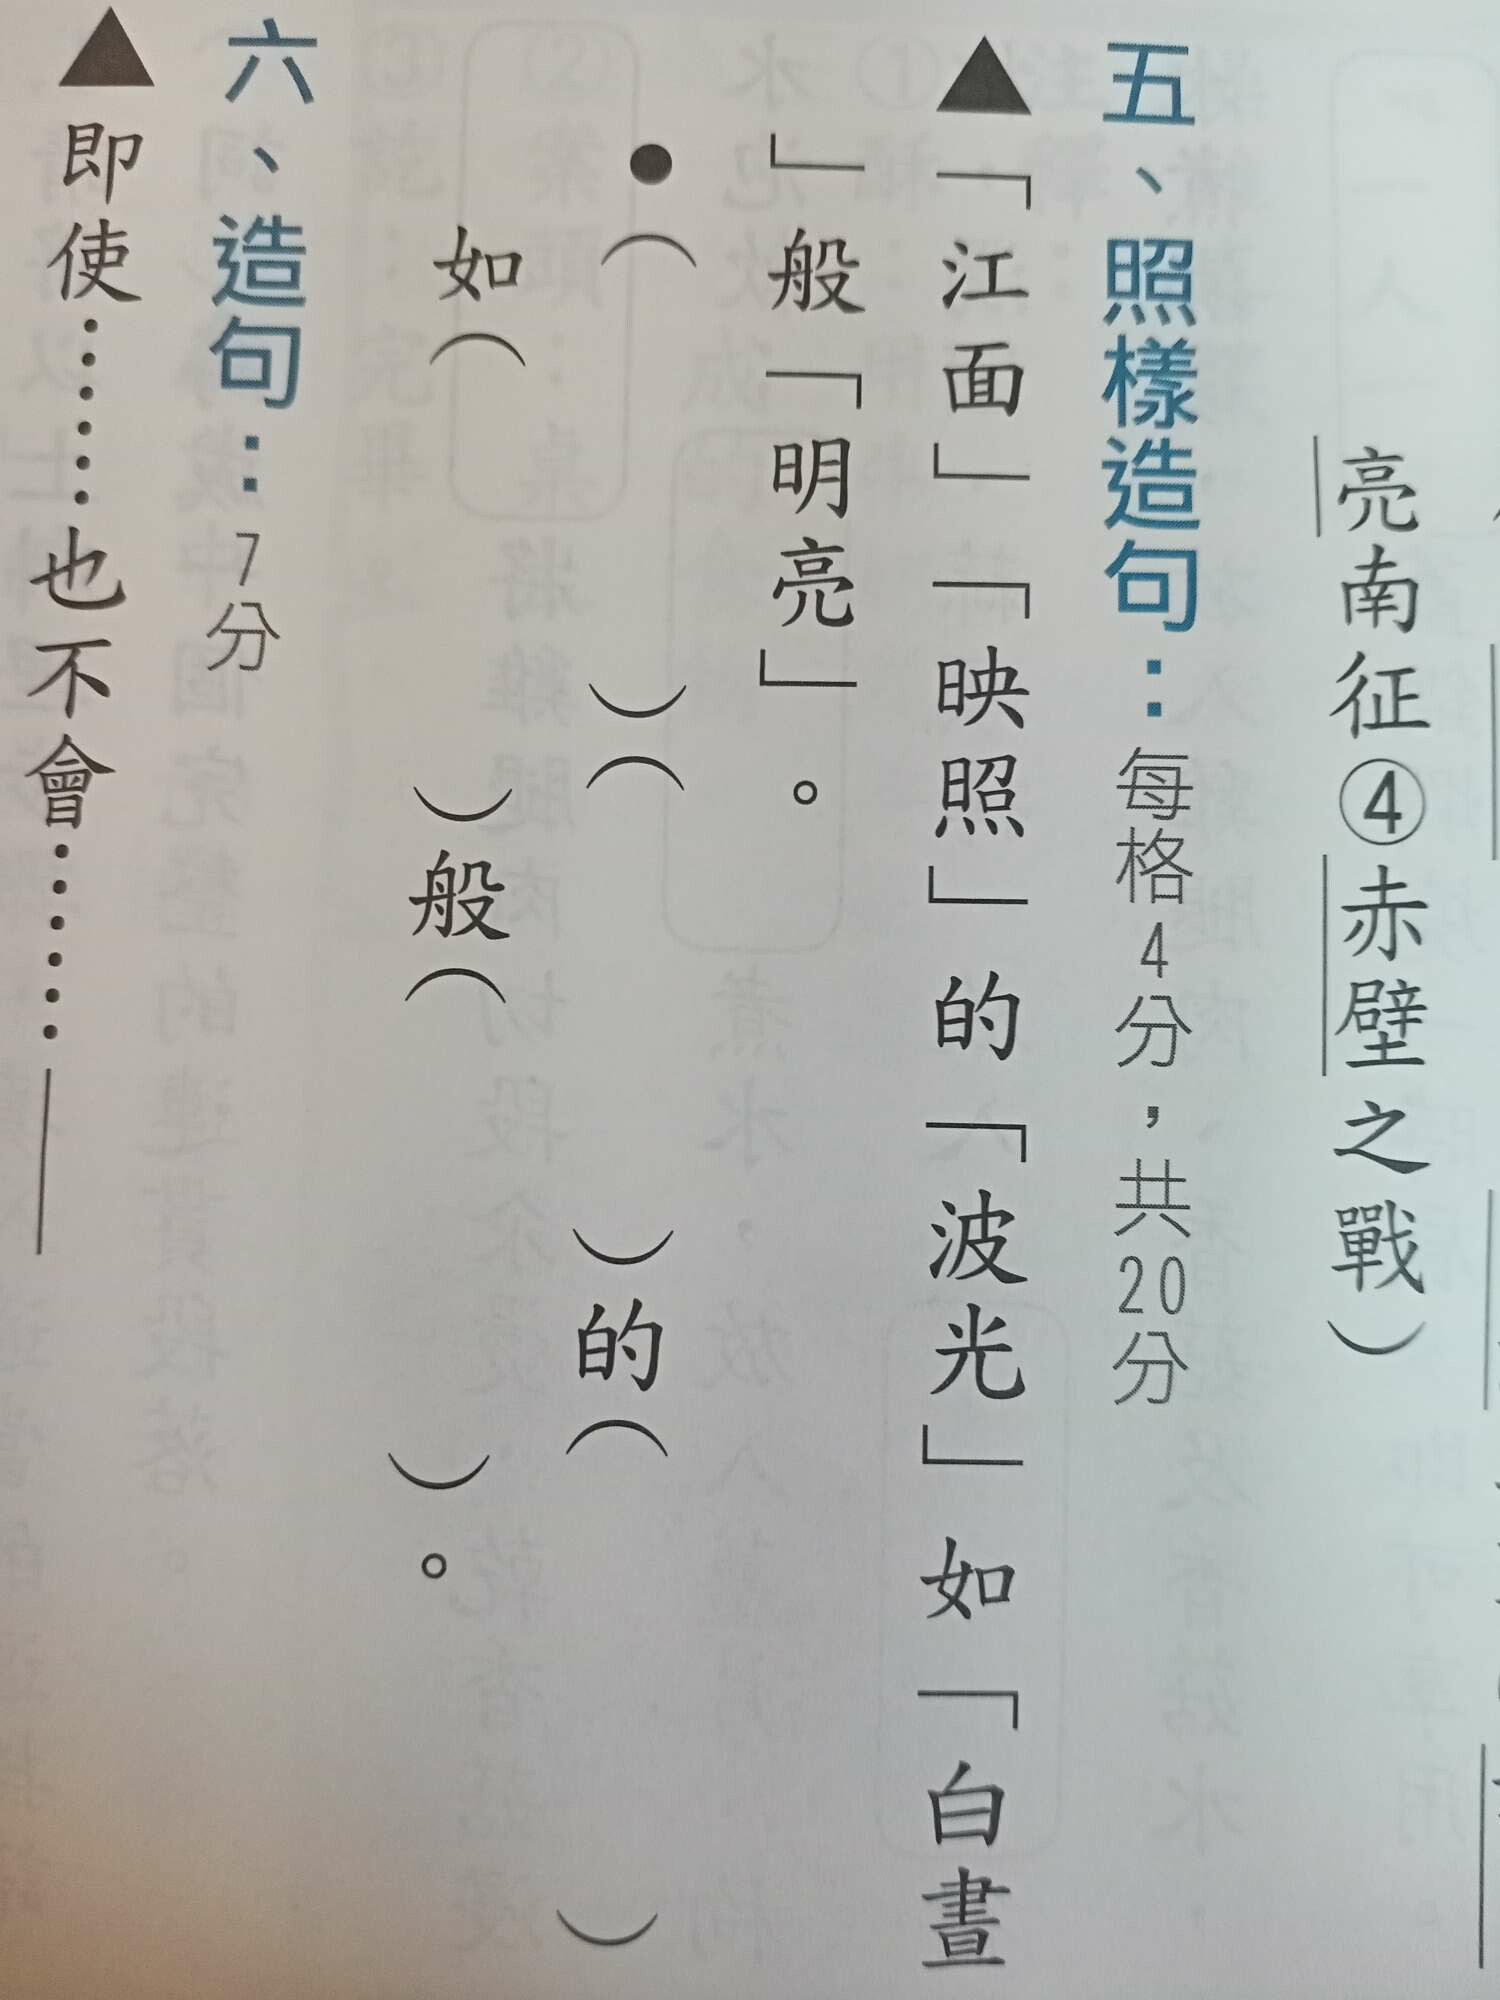 亮南征④赤壁之戰）
五、照樣造句：每格4分，共20分
▲「江面」「映照」的「波光」如「白晝
」般「明亮」。
●（　　　　）（　　　　）的（　　　　）
如（　　　　）般（　　　　）。
六、造句：7分
▲即使……也不會……